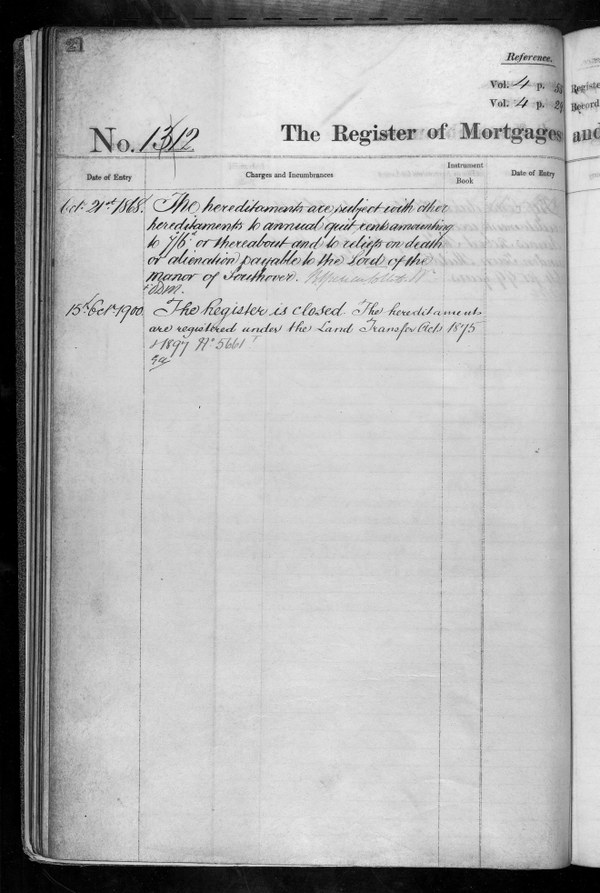 21
Reference.
Vol. 4 p.
Vol. 4 p.
No. 1312
The Register of Mortgages and
Date of Entry
Charges and Incumbrances
Instrument
Book
Date of Entry
Octr 21st 1868.
The hereditaments are subject with other
hereditaments to annual quit rents amounting
to 7/6 or thereabout and to reliefs on death
or alienation payable to the Lord of the
Manor of Southover.
15th Octr 1900.
The Register is closed. The hereditaments
are registered under the Land Transfer Acts 1875
& 1897 No 5661